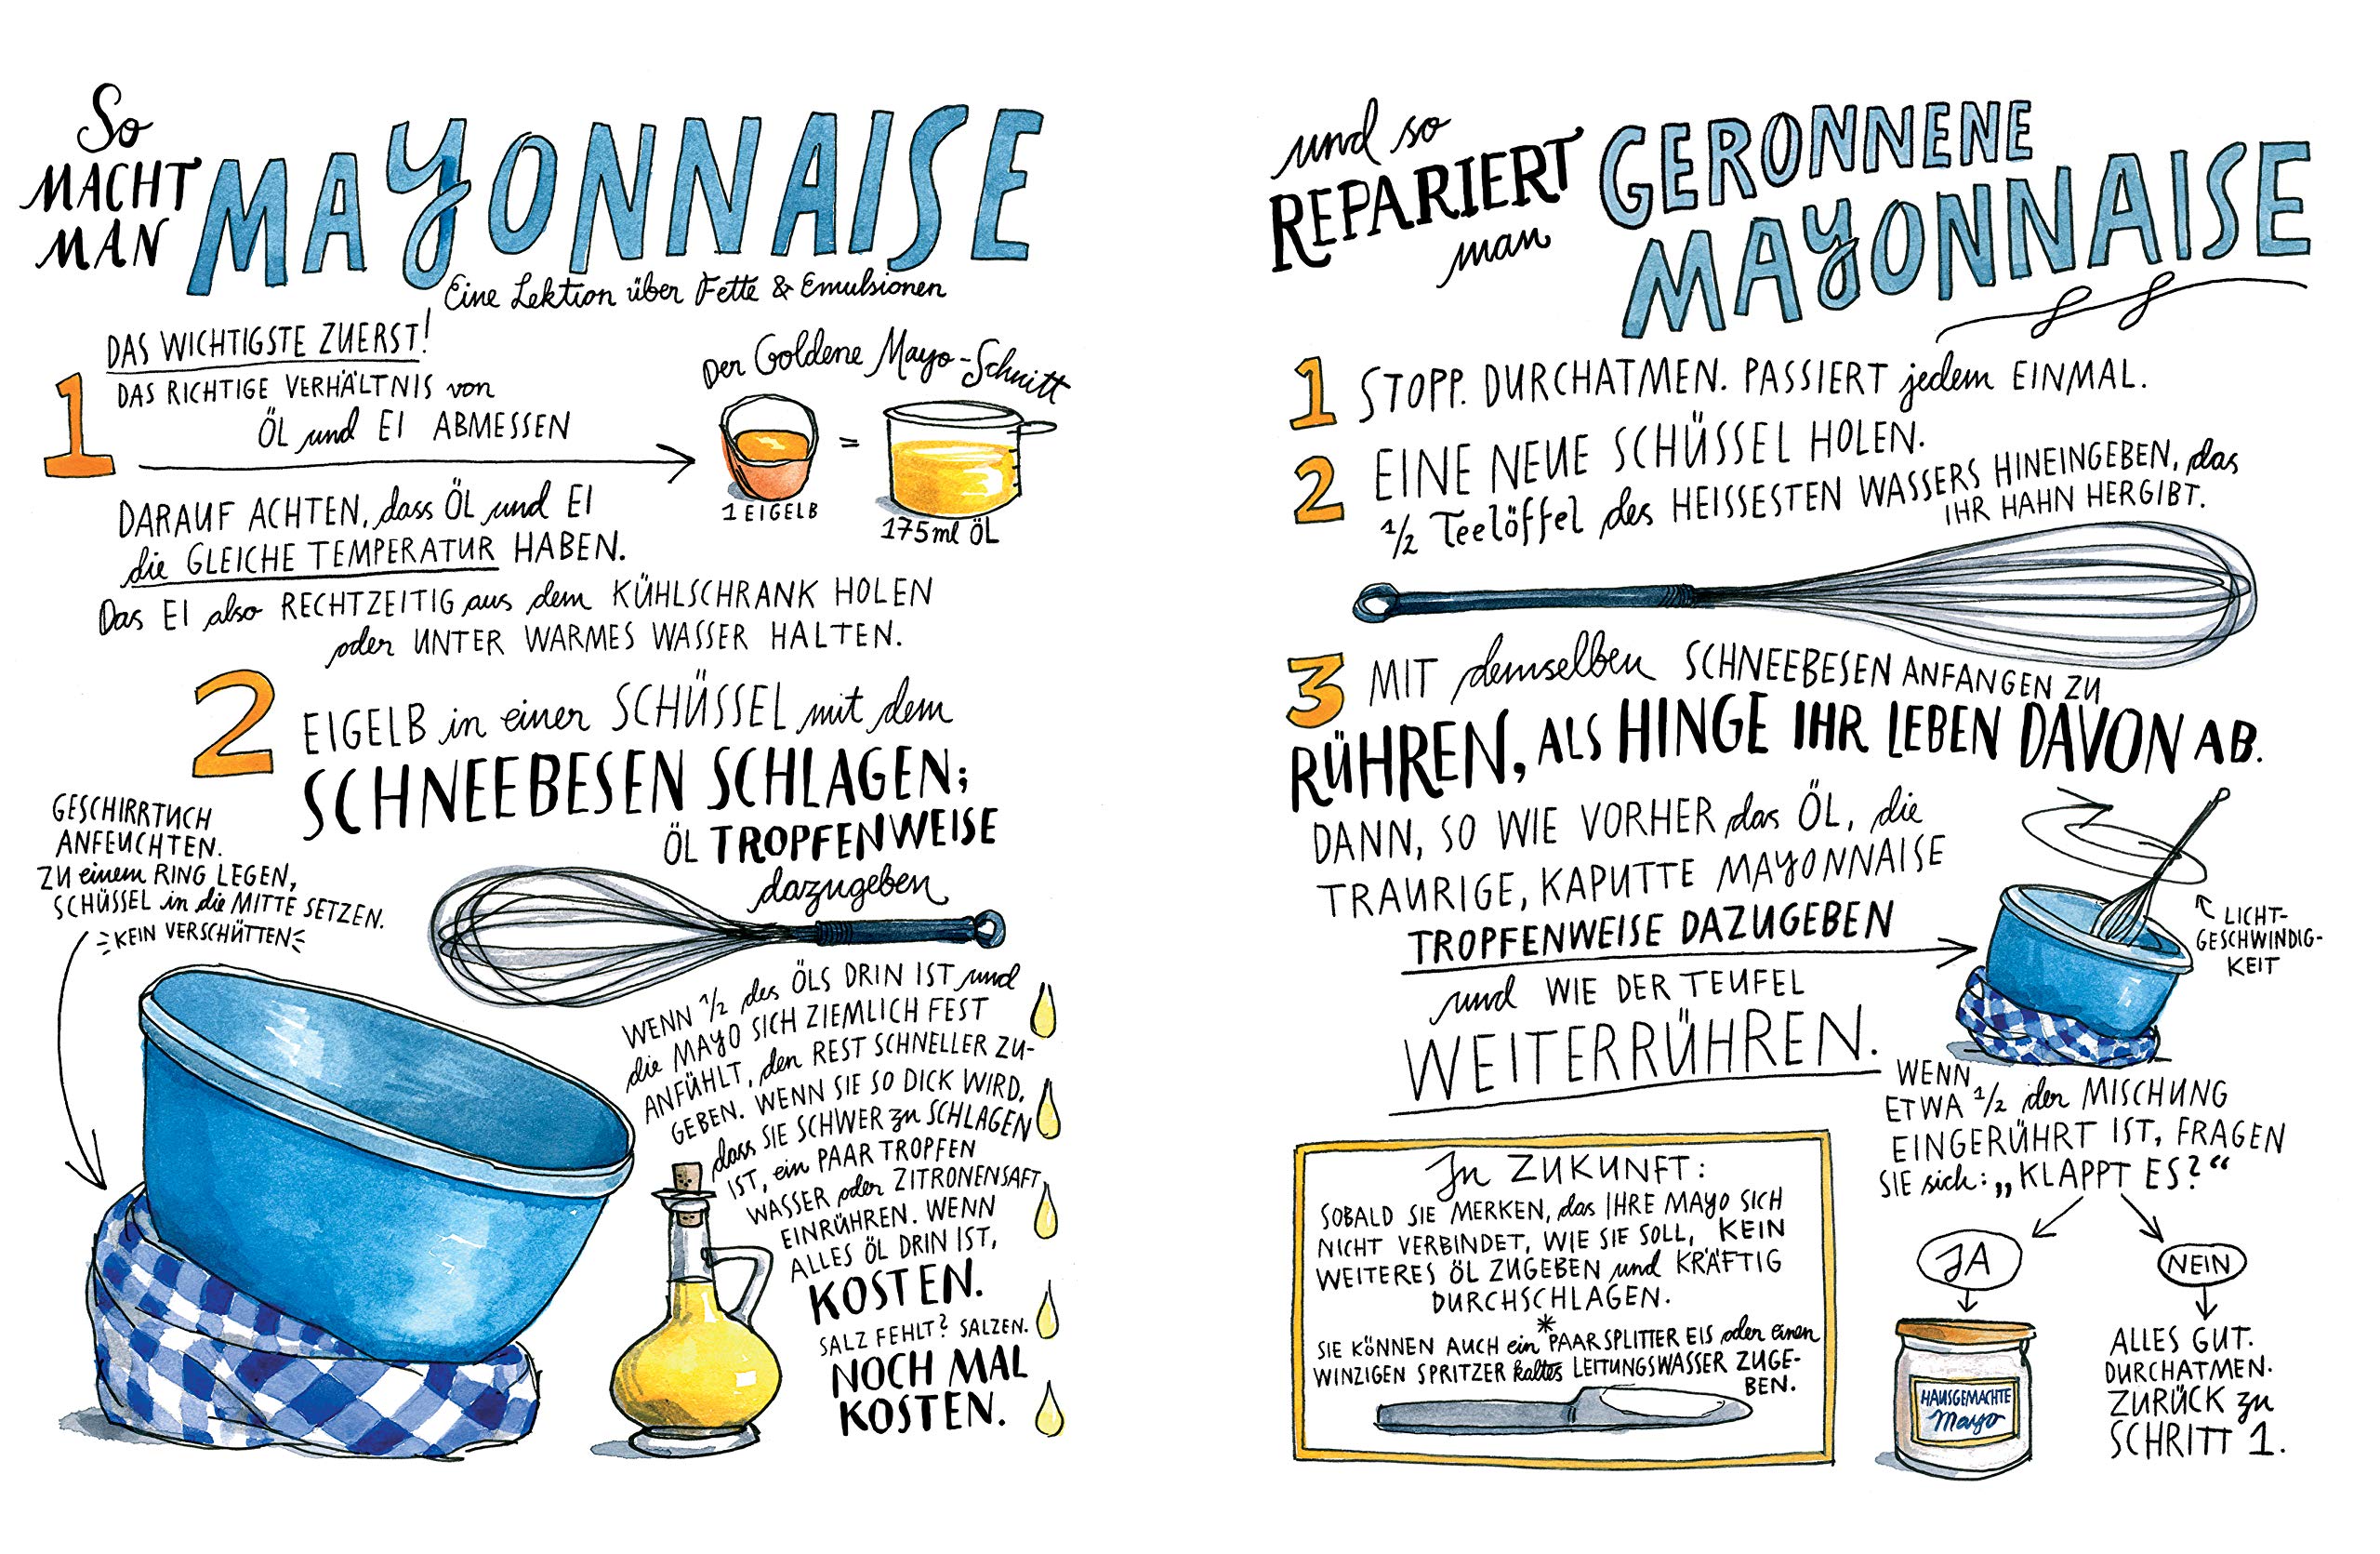 So
MACHT
MAN
MAYONNAISE
Eine Lektion über Fette & Emulsionen
DAS WICHTIGSTE ZUERST!
1
DAS RICHTIGE VERHÄLTNIS von
ÖL und EI ABMESSEN
Der Goldene Mayo-Schnitt
=
1 EIGELB
175ml ÖL
DARAUF ACHTEN, dass ÖL und EI
die GLEICHE TEMPERATUR HABEN.
Das EI also RECHTZEITIG aus dem KÜHLSCHRANK HOLEN
oder UNTER WARMES WASSER HALTEN.
2
EIGELB in einer SCHÜSSEL mit dem
SCHNEEBESEN SCHLAGEN;
ÖL TROPFENWEISE
dazugeben
GESCHIRRTUCH
ANFEUCHTEN.
ZU einem RING LEGEN,
SCHÜSSEL in die MITTE SETZEN.
KEIN VERSCHÜTTEN
WENN 1/2 des ÖLS DRIN IST und
die MAYO SICH ZIEMLICH FEST
ANFÜHLT, den REST SCHNELLER ZU-
GEBEN. WENN SIE SO DICK WIRD,
dass SIE SCHWER zu SCHLAGEN
IST, ein PAAR TROPFEN
WASSER oder ZITRONENSAFT
EINRÜHREN. WENN
ALLES ÖL DRIN IST,
KOSTEN.
SALZ FEHLT? SALZEN.
NOCH MAL
KOSTEN.
und so
REPARIERT
man
GERONNENE
MAYONNAISE
1 STOPP. DURCHATMEN. PASSIERT jedem EINMAL.
2 EINE NEUE SCHÜSSEL HOLEN.
1/2 Teelöffel des HEISSESTEN WASSERS HINEINGEBEN, das
IHR HAHN HERGIBT.
3 MIT demselben SCHNEEBESEN ANFANGEN ZU
RÜHREN, ALS HINGE IHR LEBEN DAVON AB.
DANN, SO WIE VORHER das ÖL, die
TRAURIGE, KAPUTTE MAYONNAISE
TROPFENWEISE DAZUGEBEN
und WIE DER TEUFEL
WEITERRÜHREN.
LICHT-
GESCHWINDIG-
KEIT
WENN
ETWA 1/2 der MISCHUNG
EINGERÜHRT IST, FRAGEN
SIE sich: „KLAPPT ES?“
JA
NEIN
HAUSGEMACHTE
Mayo
ALLES GUT.
DURCHATMEN.
ZURÜCK zu
SCHRITT 1.
In ZUKUNFT:
SOBALD SIE MERKEN, das IHRE MAYO SICH
NICHT VERBINDET, WIE SIE SOLL, KEIN
WEITERES ÖL ZUGEBEN und KRÄFTIG
DURCHSCHLAGEN.
*
SIE KÖNNEN AUCH ein PAAR SPLITTER EIS oder einen
WINZIGEN SPRITZER kaltes LEITUNGSWASSER ZUGE-
BEN.